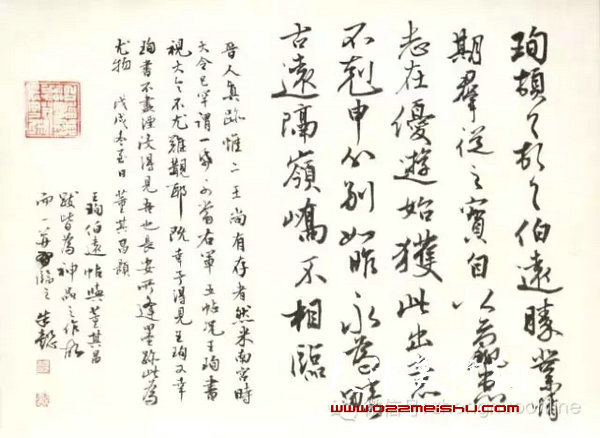 珣頓首頓首伯遠勝業情
期羣從之寶自以羸患
志在優遊始獲此出意
不剋申分別如昨永爲疇
古遠隔嶺嶠不相臨
晉人真跡惟二王尚有存者然米南宮時
大令已罕謂一紙可當右軍五帖況王珣書
視大令不尤難覯耶既幸予得見王珣又幸
珣書不盡湮沒得見吾也長安所逢墨跡此為
尤物 戊戌冬至日 董其昌題
王珣伯遠帖與董其昌
跋皆為神品之作故
而一并臨之
www.022meishu.com